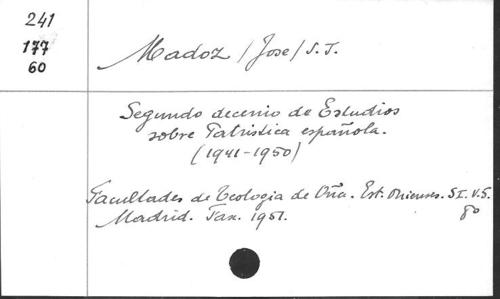 241
177
60
Madoz /Jose/ S.J.
Segundo decenio de Estudios
sobre Patristica española.
(1941-1950)
Facultades de Teologia de Oña. Est. Onienses. S I. V.5.
Madrid. Fax. 1951. 8º